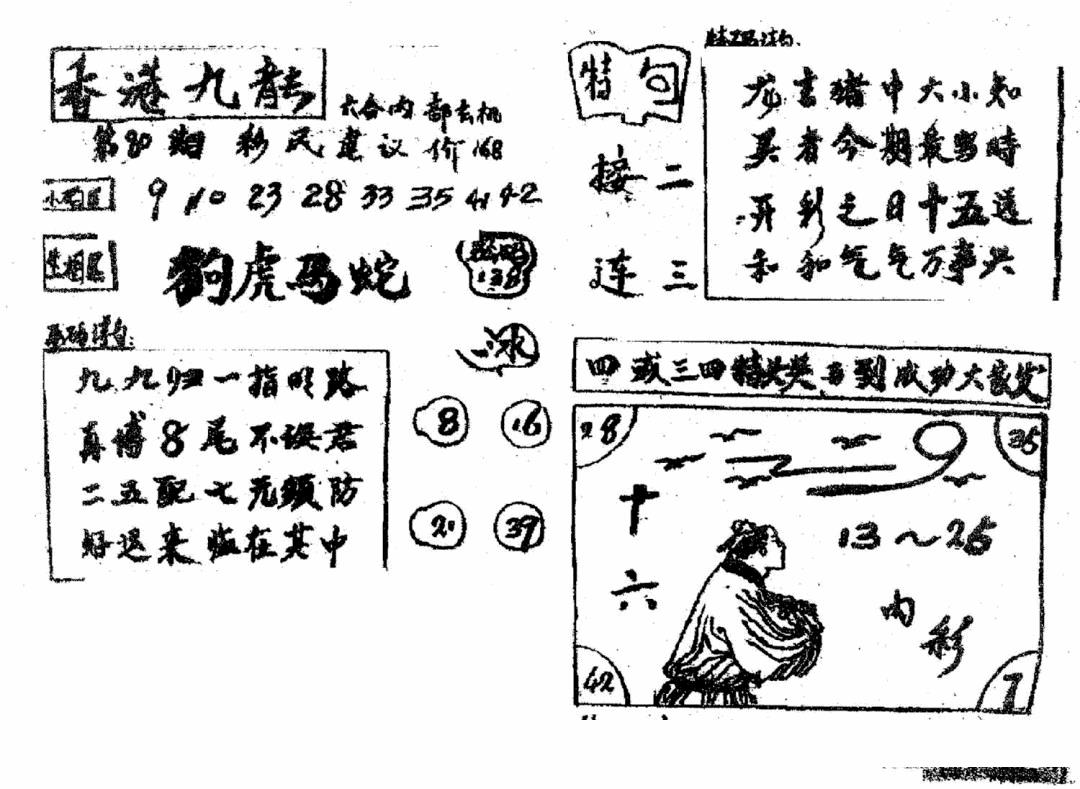 香港九龍
六合内部玄机
第80期 彩民建议价168
9 10 23 28 33 35 41 42
狗虎马蛇
138
九九归一指明路
真博8尾不误君
二五配七先须防
好运来临在其中
冰
8 16
21 39
特句
接二
连三
龙言猪中大小知
吴者今期最当时
开彩之日十五送
和和气气万事兴
四或三四特头奖 成功大家发
28 35
十六
13~25
内彩
42 7